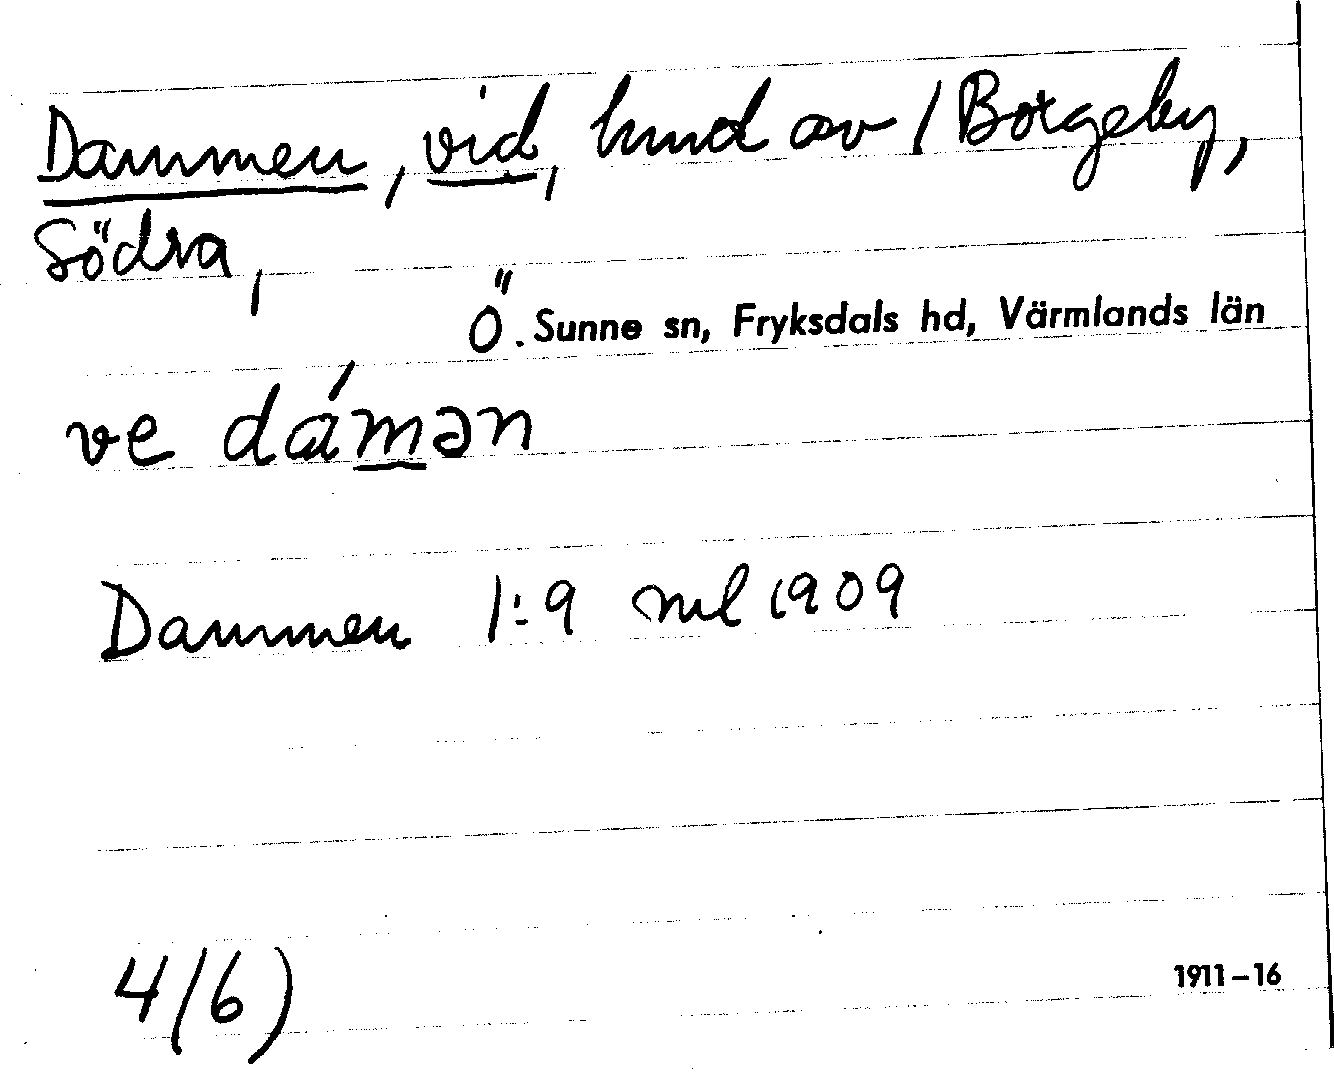 Dammen, vid, hmd av 1 Borgeby,
Södra,
Ö. Sunne sn, Fryksdals hd, Värmlands län
ve dámən
Dammen 1:9 ml 1909
4(6)
1911-16